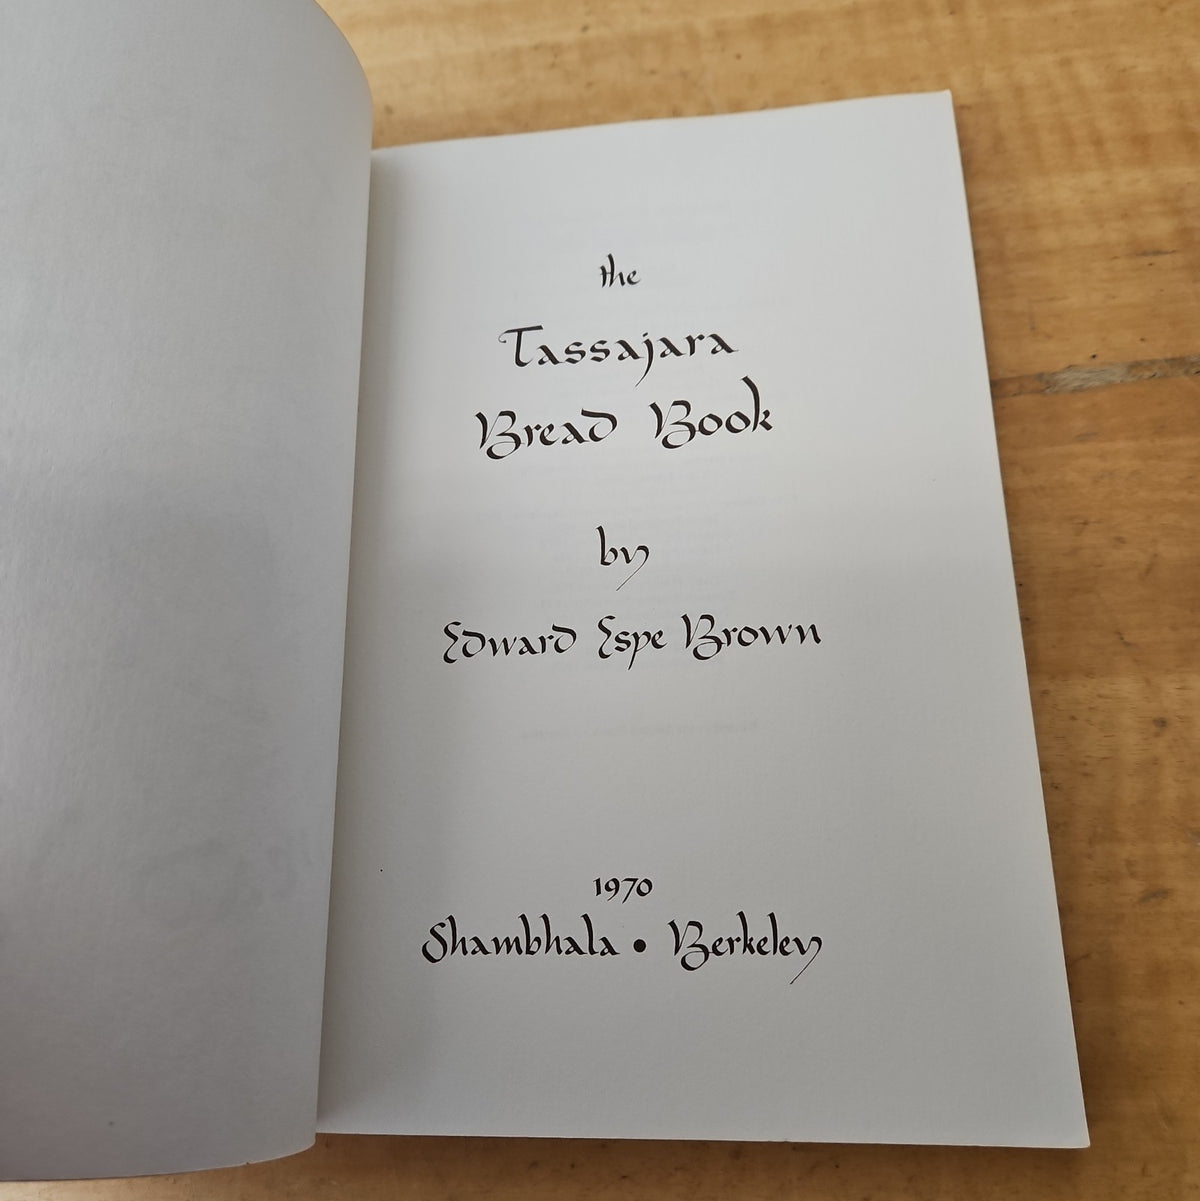 the
Tassajara
Bread Book
by
Edward Espe Brown
1970
Shambhala • Berkeley